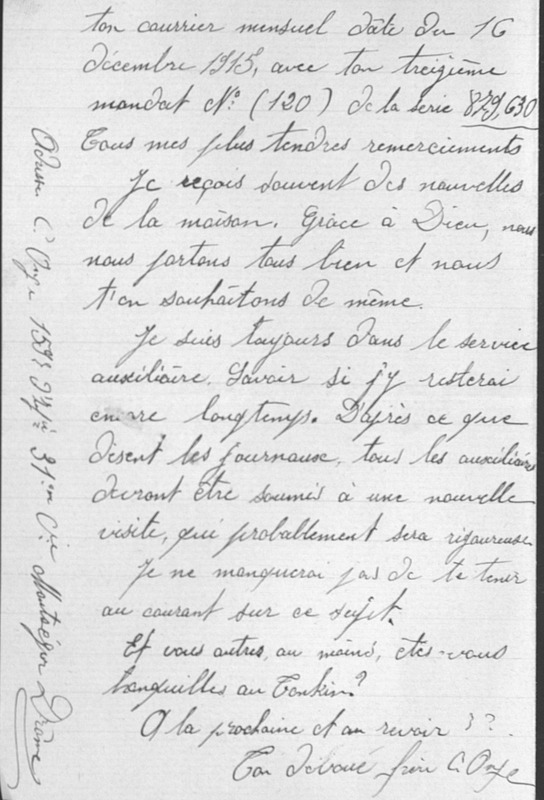 ton courrier mensuel dâte du 16
décembre 1915, avec ton treizième
mandat No: (120) de la serie 879,630
Tous mes plus tendres remerciements
Je reçois souvent des nouvelles
de la maison. Grâce à Dieu, nous
nous portons tous bien et nous
t'en souhâitons de même.
Je suis toujours dans le service
auxiliâire. Savoir si j'y resterai
encore longtemps. D'après ce que
disent les journaux, tous les auxiliâires
devront être soumis à une nouvelle
visite, qui probablement sera rigoureuse
Je ne manquerai pas de te tenir
au courant sur ce sujet.
Et vous autres, au moins, êtes-vous
tranquilles au Tonkin?
A la prochaine et au revoir ??.
Ton dévoué frère C.
Adresse C. 31eme Cie Montségur Drôme